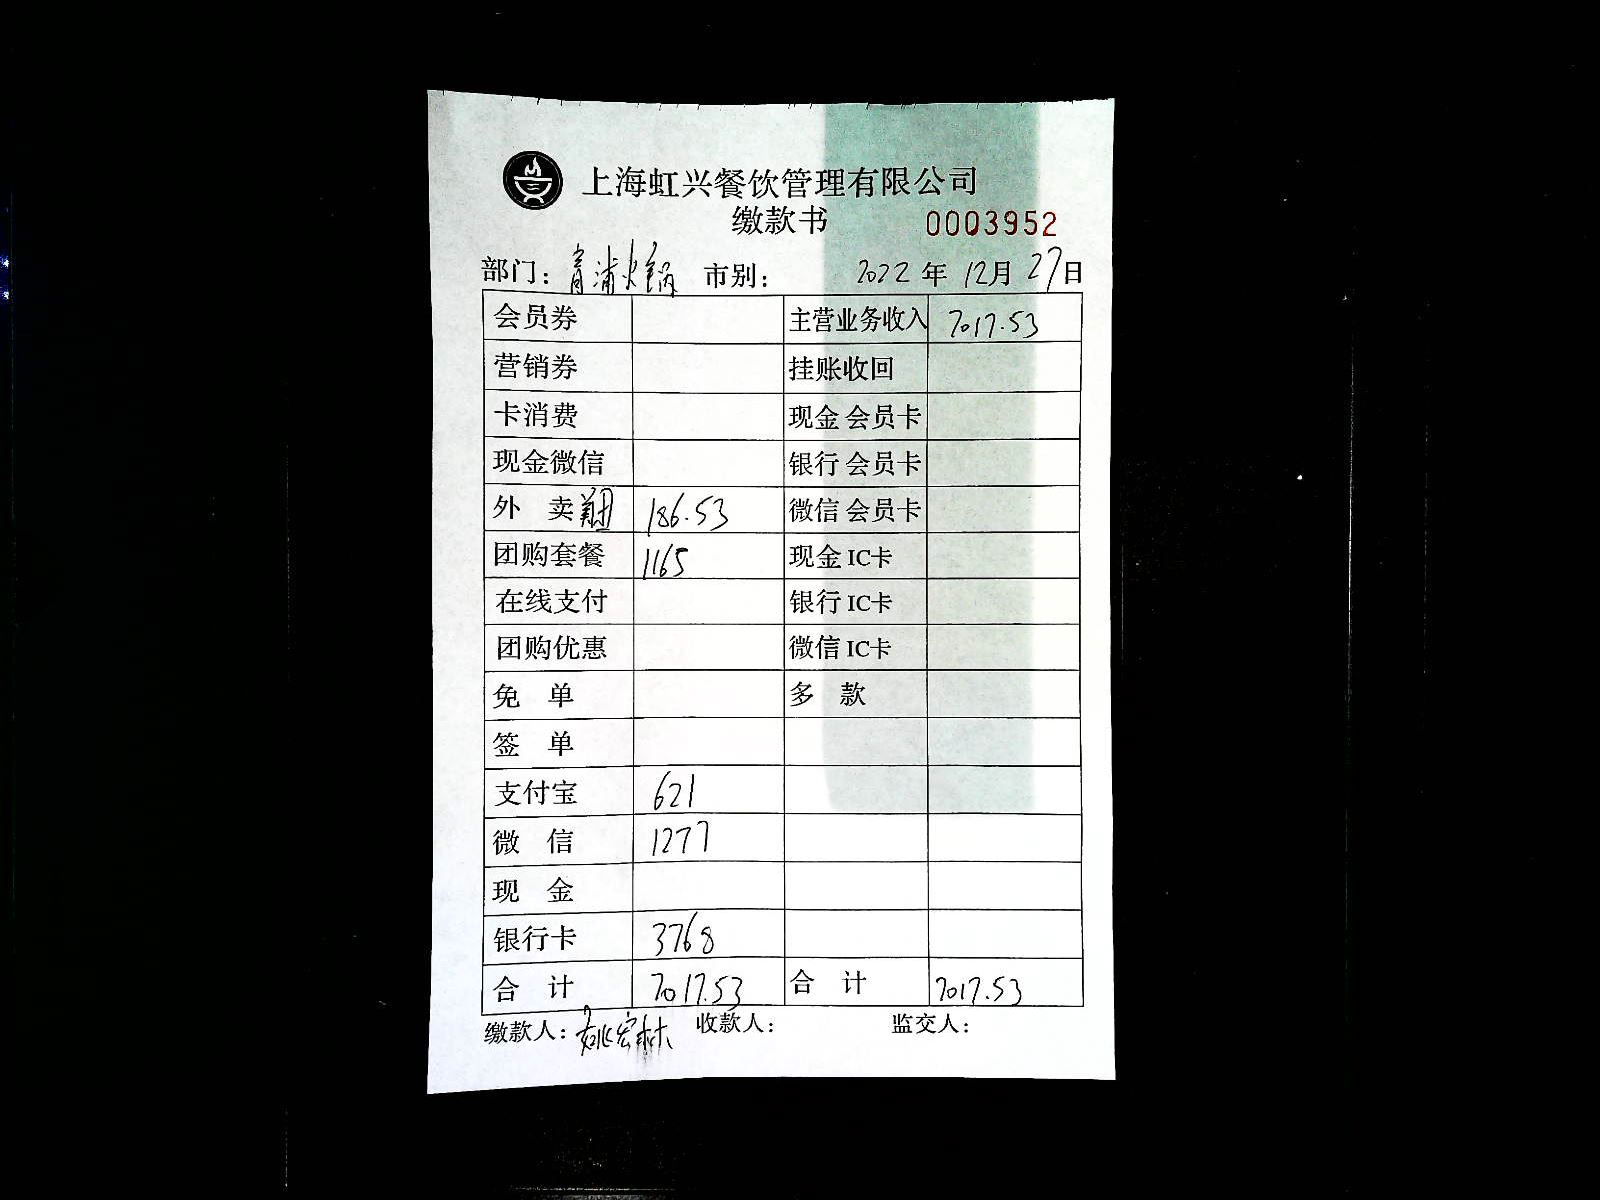 上海虹兴餐饮管理有限公司
缴款书 0003952
部门：青浦火锅 市别： 2022 年 12月 27日
会员券 主营业务收入 7017.53
营销券 挂账收回
卡消费 现金 会员卡
现金微信 银行 会员卡
外 卖 美团 186.53 微信 会员卡
团购套餐 1165 现金 IC卡
在线支付 银行 IC卡
团购优惠 微信 IC卡
免 单 多 款
签 单
支付宝 621
微 信 1277
现 金
银行卡 3768
合 计 7017.53 合 计 7017.53
缴款人：姚宏林 收款人： 监交人：